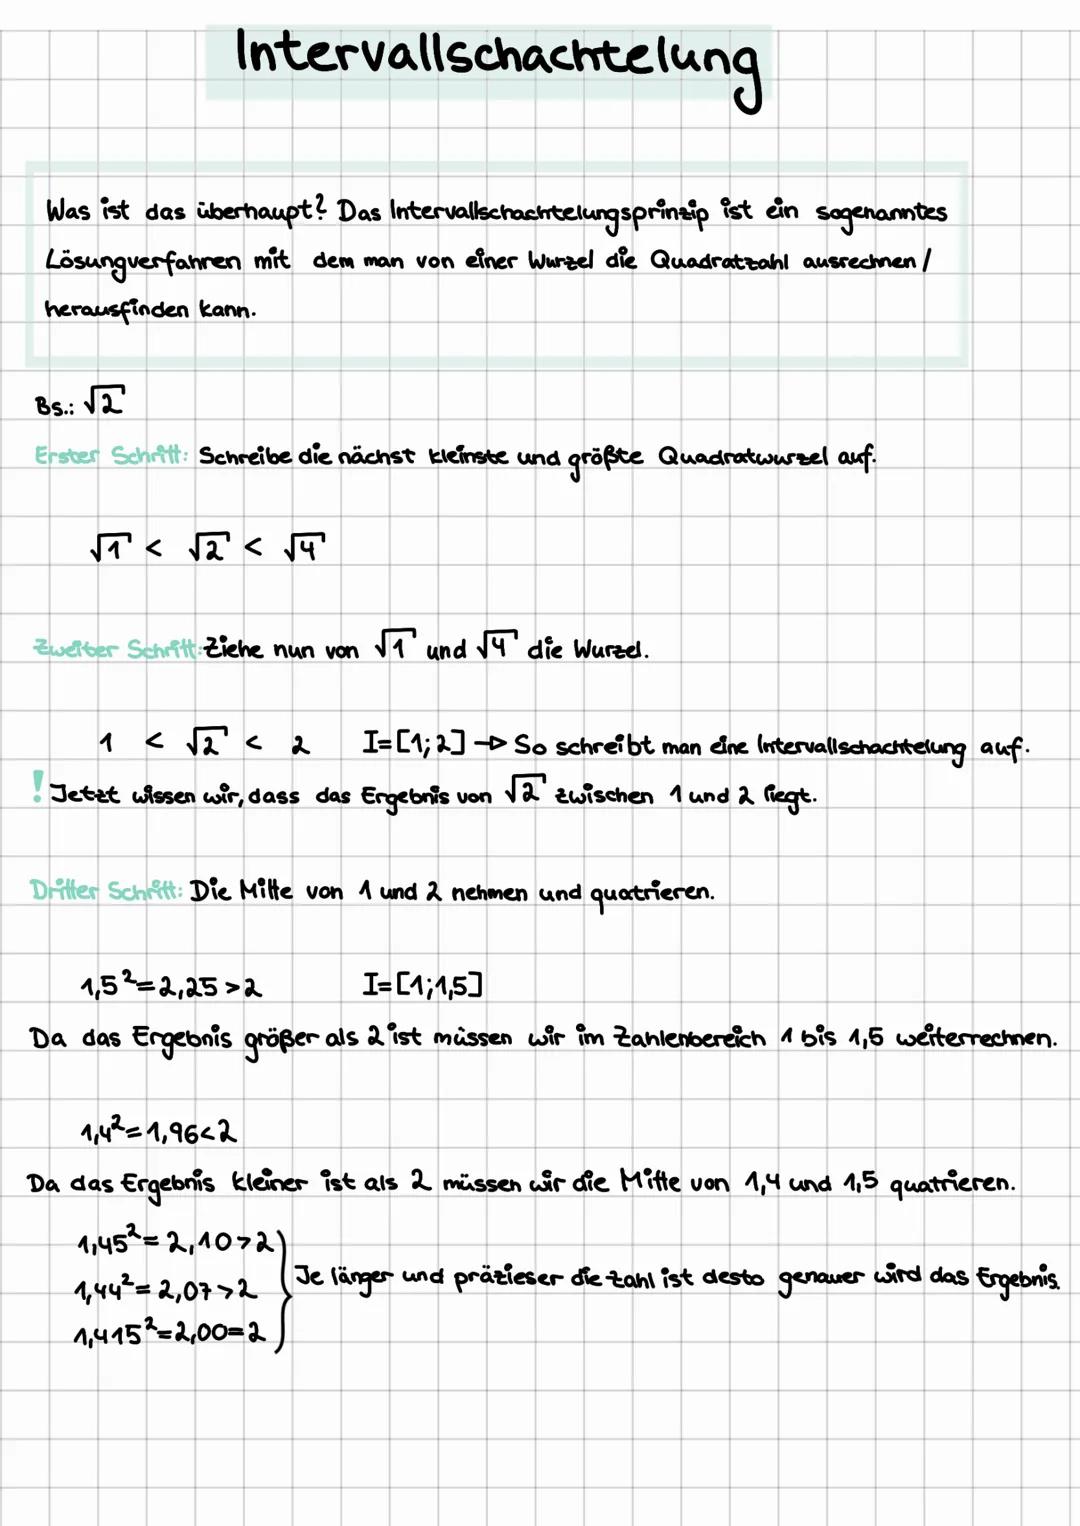 Intervallschachtelung
Was ist das überhaupt? Das Intervallschachtelungsprinzip ist ein sogenanntes
Lösungverfahren mit dem man von einer Wurzel die Quadratzahl ausrechnen /
herausfinden kann.
Bs.: √2
Erster Schritt: Schreibe die nächst kleinste und größte Quadratwurzel auf.
√1 < √2 < √4
Zweiter Schritt: Ziehe nun von √1 und √4 die Wurzel.
1 < √2 < 2 I=[1;2] → So schreibt man eine Intervallschachtelung auf.
! Jetzt wissen wir, dass das Ergebnis von √2 zwischen 1 und 2 liegt.
Dritter Schritt: Die Mitte von 1 und 2 nehmen und quatrieren.
1,5²=2,25>2 I=[1;1,5]
Da das Ergebnis größer als 2 ist müssen wir im Zahlenbereich 1 bis 1,5 weiterrechnen.
1,4²=1,96<2
Da das Ergebnis kleiner ist als 2 müssen wir die Mitte von 1,4 und 1,5 quatrieren.
1,45²=2,10>2
1,44²=2,07>2 } Je länger und präzieser die Zahl ist desto genauer wird das Ergebnis.
1,415²=2,00=2